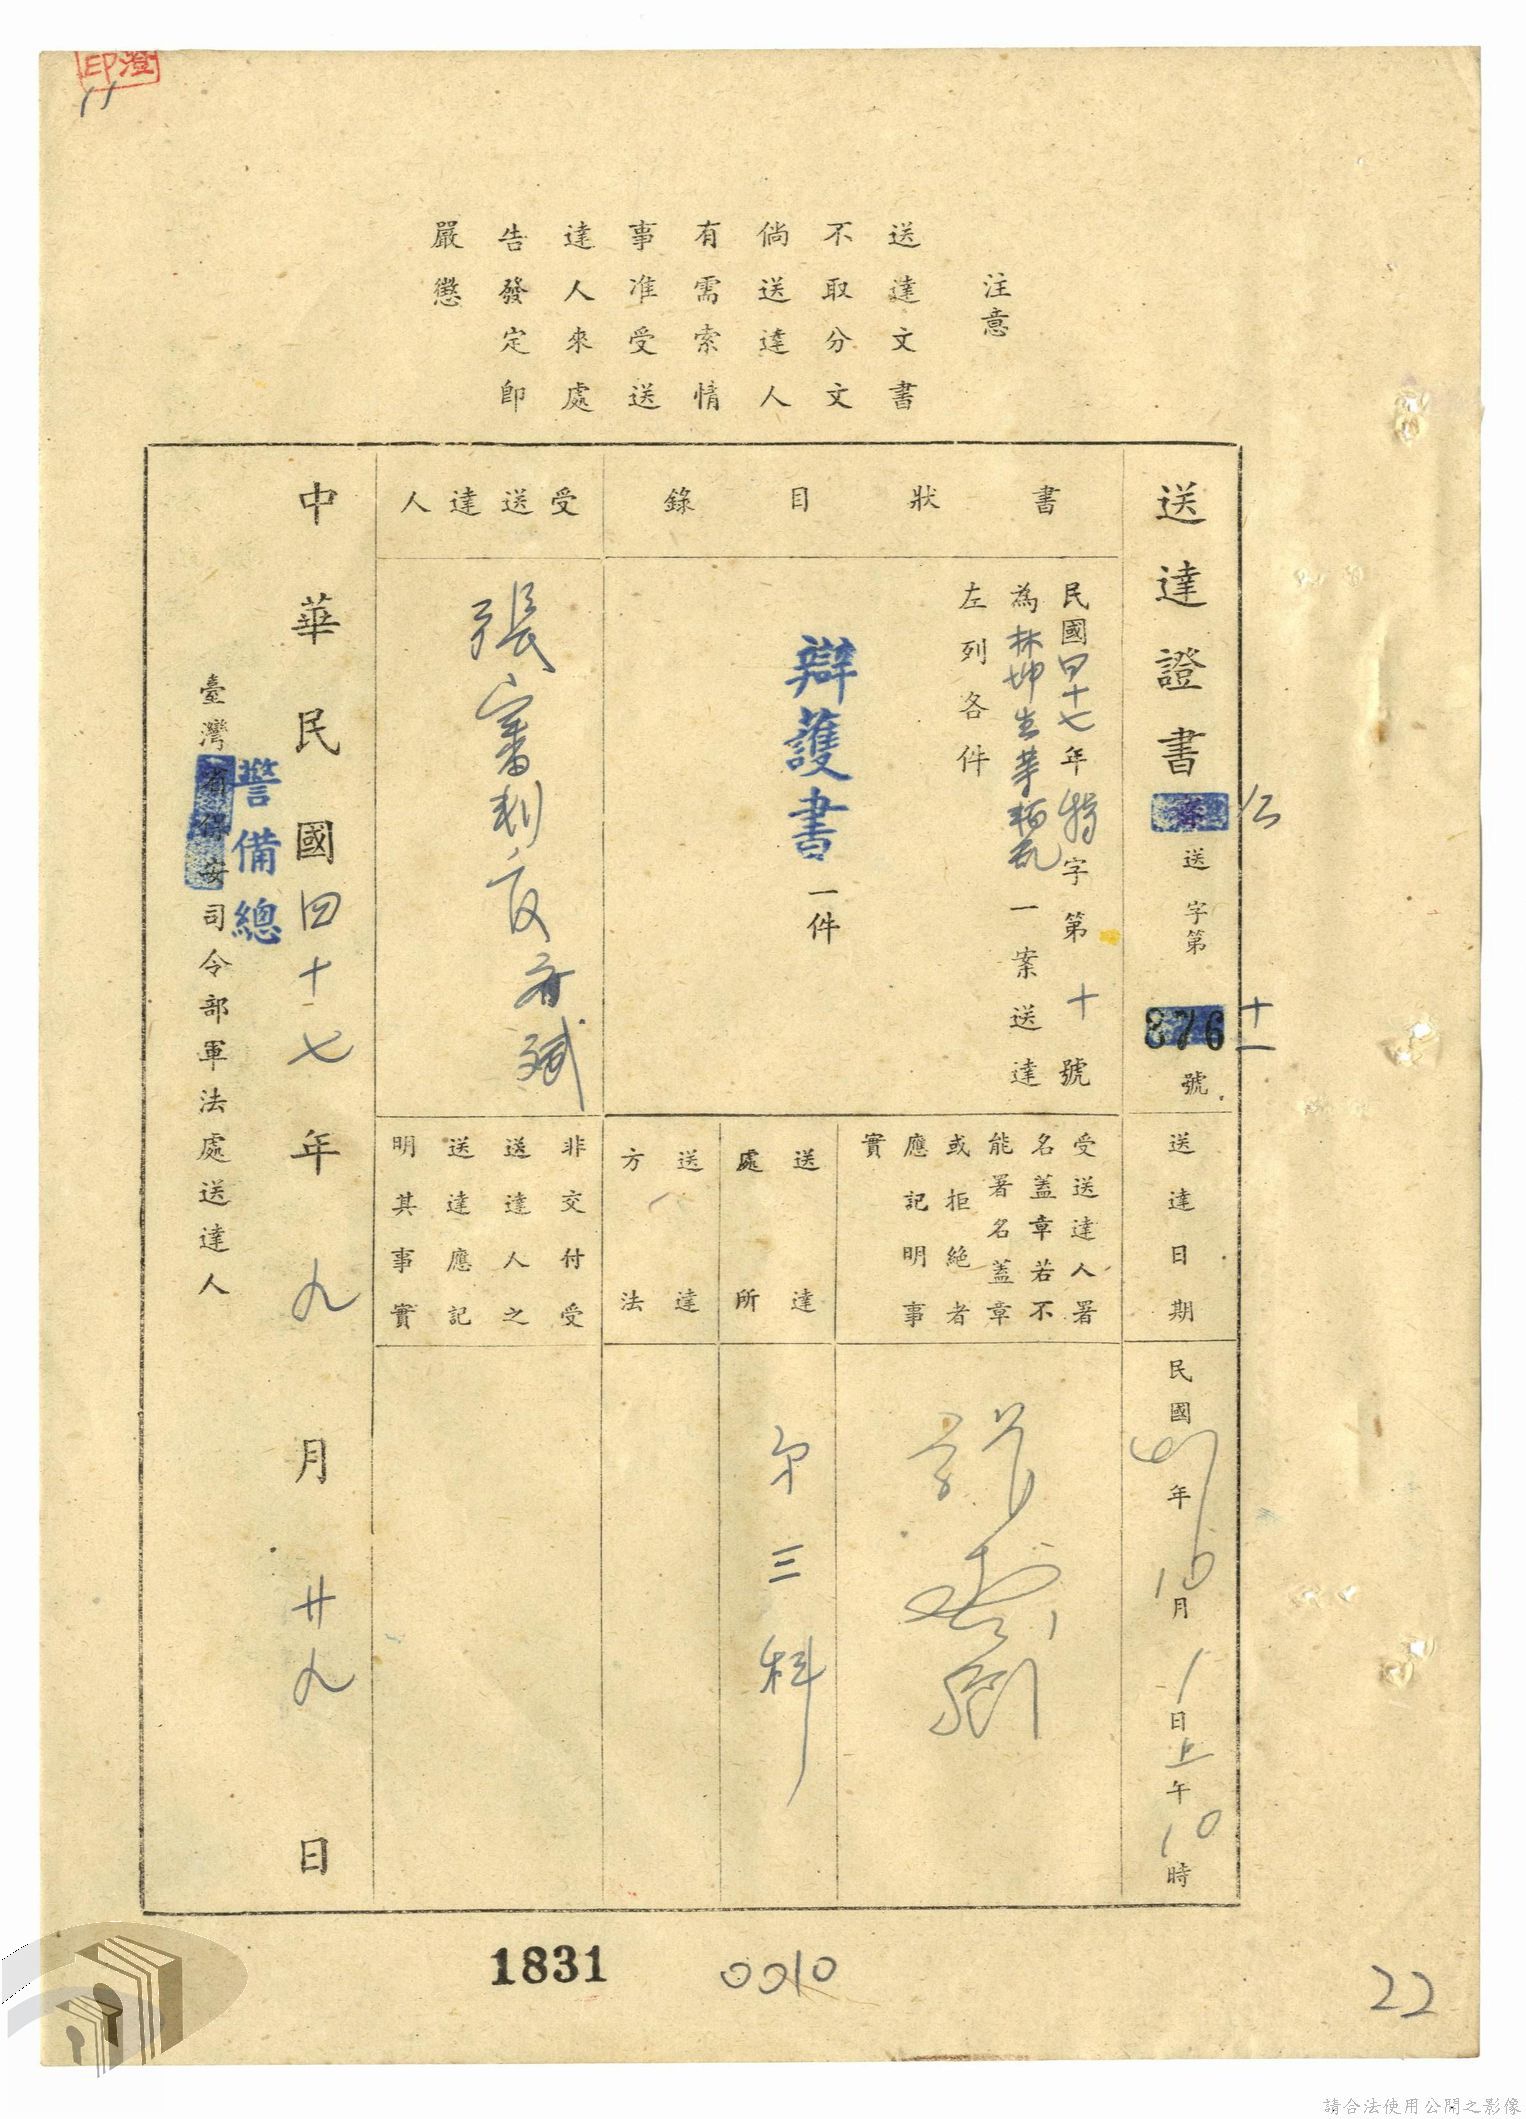 澄印
11
注意
送達文書
不取分文
倘送達人
有需索情
事准受送
達人來處
告發定即
嚴懲
送達證書
仁
送字第
876
十一
號
書狀目錄
民國四十七年特字第十號
為林坤生等叛亂一案送達
左列各件
辯護書一件
受送達人
張審判官
送達日期
民國47年10月1日上午10時
受送達人署
名蓋章若不
能署名蓋章
或拒絕者
應記明事
實
送達
處所
第三科
送達
方法
非交付受
送達人之
送達應記
明其事實
中華民國四十七年九月廿九日
臺灣省保安司令部軍法處送達人
警備總
1831
0010
22
請合法使用公開之影像